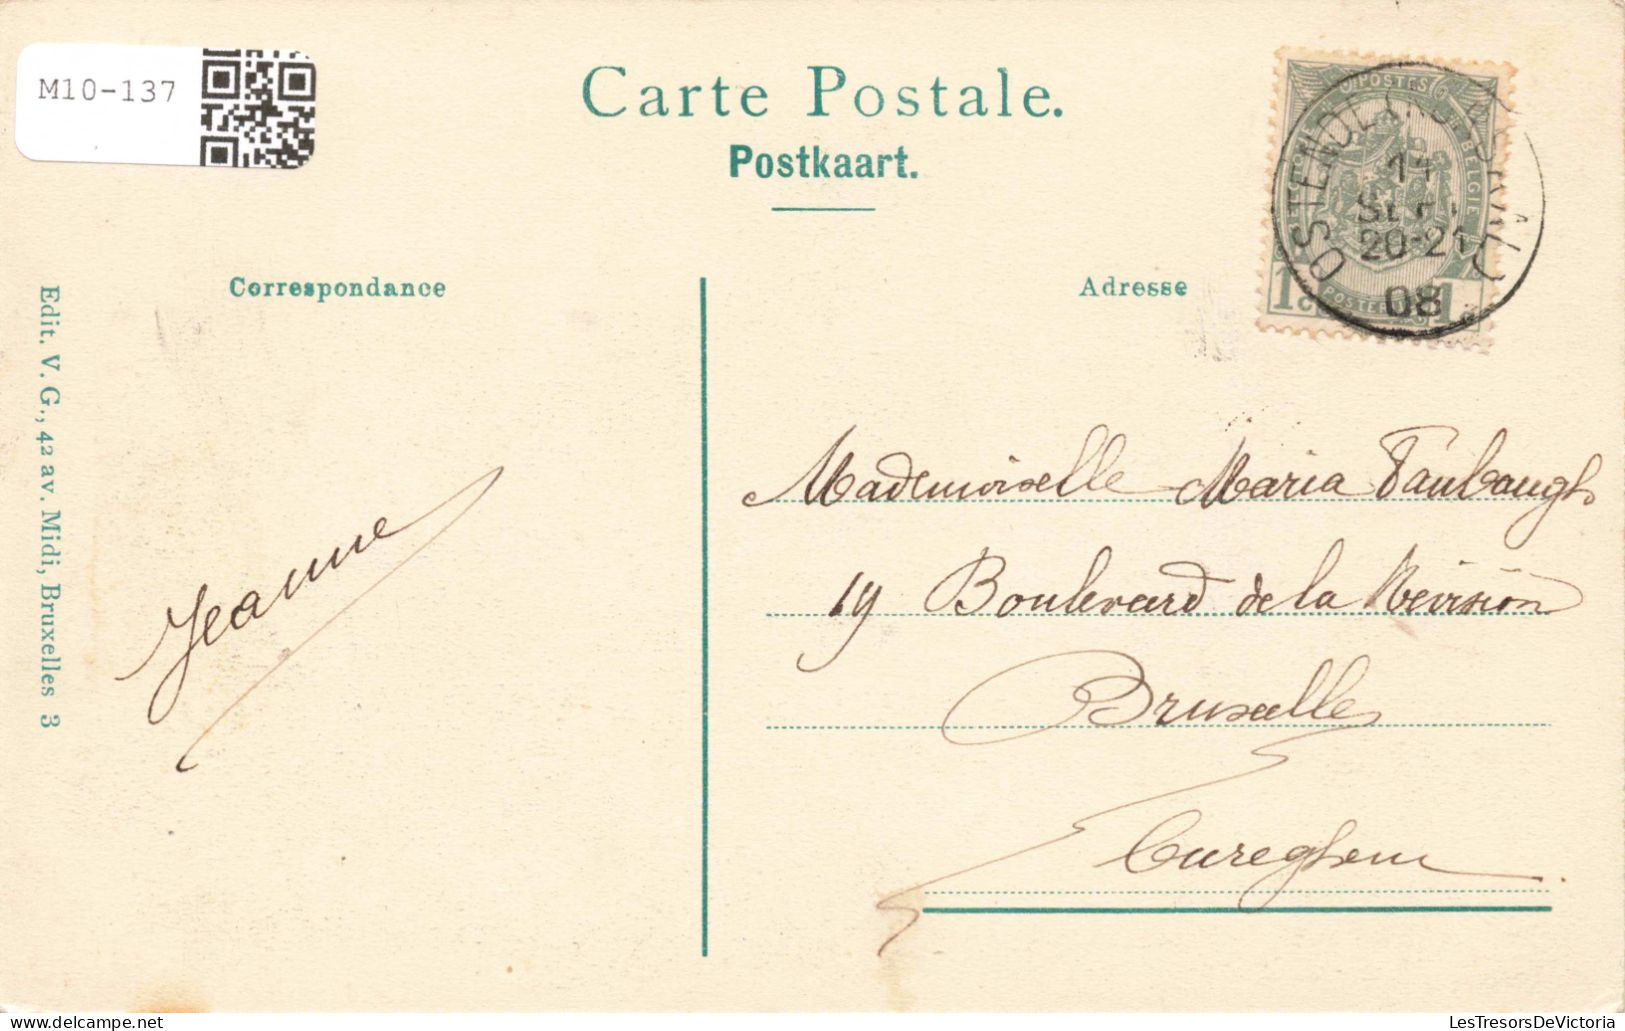 M10-137
Carte Postale.
Postkaart.
Correspondance
Adresse
Edit. V. G., 42 av. Midi, Bruxelles 3
POSTES
1c
1c
OSTENDE
11
SEPT
20-21
08
Jeanne
Mademoiselle Maria Vanbaugh
19 Boulevard de la Révision
Bruxelles
Cureghem
LesTresorsDeVictoria